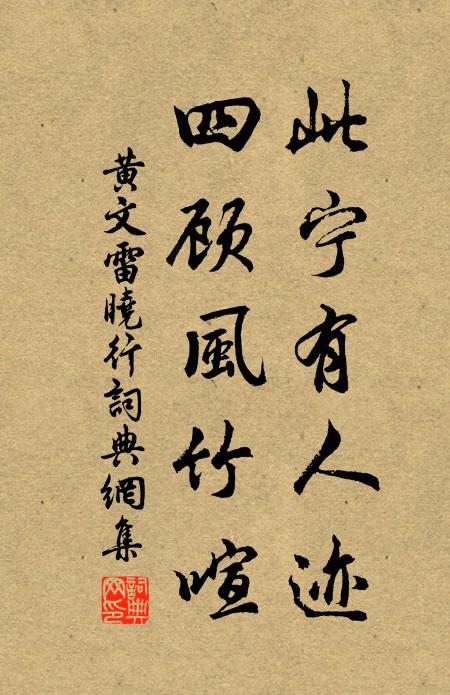 此宁有人迹
四顾風竹喧
黄文雷曉行詞典網集
詞典網印